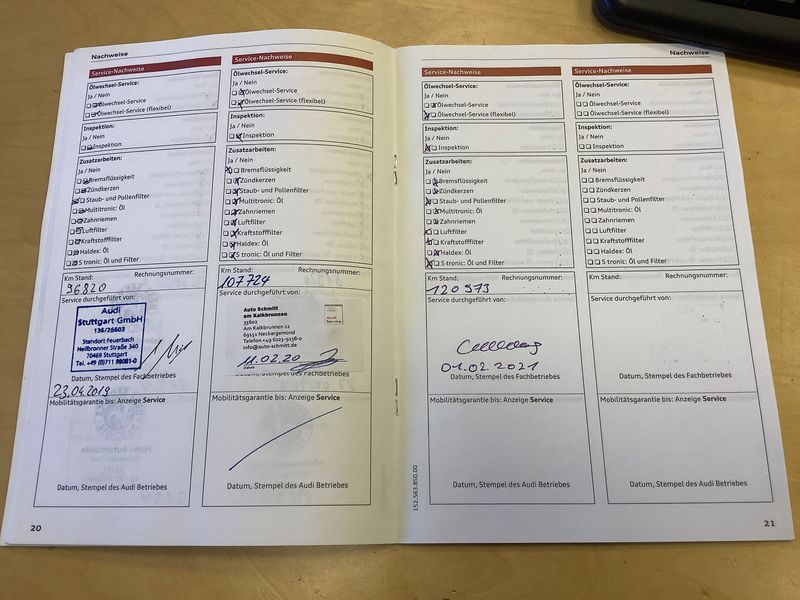 Nachweise
Service-Nachweise
Ölwechsel-Service:
Ja / Nein
Ölwechsel-Service
Ölwechsel-Service (flexibel)
Inspektion:
Ja / Nein
Inspektion
Zusatzarbeiten:
Ja / Nein
Bremsflüssigkeit
Zündkerzen
Staub- und Pollenfilter
Multitronic: Öl
Zahnriemen
Luftfilter
Kraftstofffilter
Haldex: Öl
S tronic: Öl und Filter
Km Stand: Rechnungsnummer:
96820
Service durchgeführt von:
Audi
Stuttgart GmbH
136/26603
Standort Feuerbach
Heilbronner Straße 340
70469 Stuttgart
Tel. +49 (0)711 89081-0
Datum, Stempel des Fachbetriebes
23.04.2019
Mobilitätsgarantie bis: Anzeige Service
Datum, Stempel des Audi Betriebes
20
Service-Nachweise
Ölwechsel-Service:
Ja / Nein
Ölwechsel-Service
Ölwechsel-Service (flexibel)
Inspektion:
Ja / Nein
Inspektion
Zusatzarbeiten:
Ja / Nein
Bremsflüssigkeit
Zündkerzen
Staub- und Pollenfilter
Multitronic: Öl
Zahnriemen
Luftfilter
Kraftstofffilter
Haldex: Öl
S tronic: Öl und Filter
Km Stand: Rechnungsnummer:
107724
Service durchgeführt von:
Auto Schmitt
am Kalkbrunnen
35602
Am Kalkbrunnen 12
69151 Neckargemünd
Telefon +49 6223-9238-0
info@auto-schmitt.de
Audi
Service
11.02.20
Datum
Datum, Stempel des Fachbetriebes
Mobilitätsgarantie bis: Anzeige Service
Datum, Stempel des Audi Betriebes
Nachweise
Service-Nachweise
Ölwechsel-Service:
Ja / Nein
Ölwechsel-Service
Ölwechsel-Service (flexibel)
Inspektion:
Ja / Nein
Inspektion
Zusatzarbeiten:
Ja / Nein
Bremsflüssigkeit
Zündkerzen
Staub- und Pollenfilter
Multitronic: Öl
Zahnriemen
Luftfilter
Kraftstofffilter
Haldex: Öl
S tronic: Öl und Filter
Km Stand: Rechnungsnummer:
120973
Service durchgeführt von:
01.02.2021
Datum, Stempel des Fachbetriebes
Mobilitätsgarantie bis: Anzeige Service
Datum, Stempel des Audi Betriebes
152.563.850.00
Service-Nachweise
Ölwechsel-Service:
Ja / Nein
Ölwechsel-Service
Ölwechsel-Service (flexibel)
Inspektion:
Ja / Nein
Inspektion
Zusatzarbeiten:
Ja / Nein
Bremsflüssigkeit
Zündkerzen
Staub- und Pollenfilter
Multitronic: Öl
Zahnriemen
Luftfilter
Kraftstofffilter
Haldex: Öl
S tronic: Öl und Filter
Km Stand: Rechnungsnummer:
Service durchgeführt von:
Datum, Stempel des Fachbetriebes
Mobilitätsgarantie bis: Anzeige Service
Datum, Stempel des Audi Betriebes
21